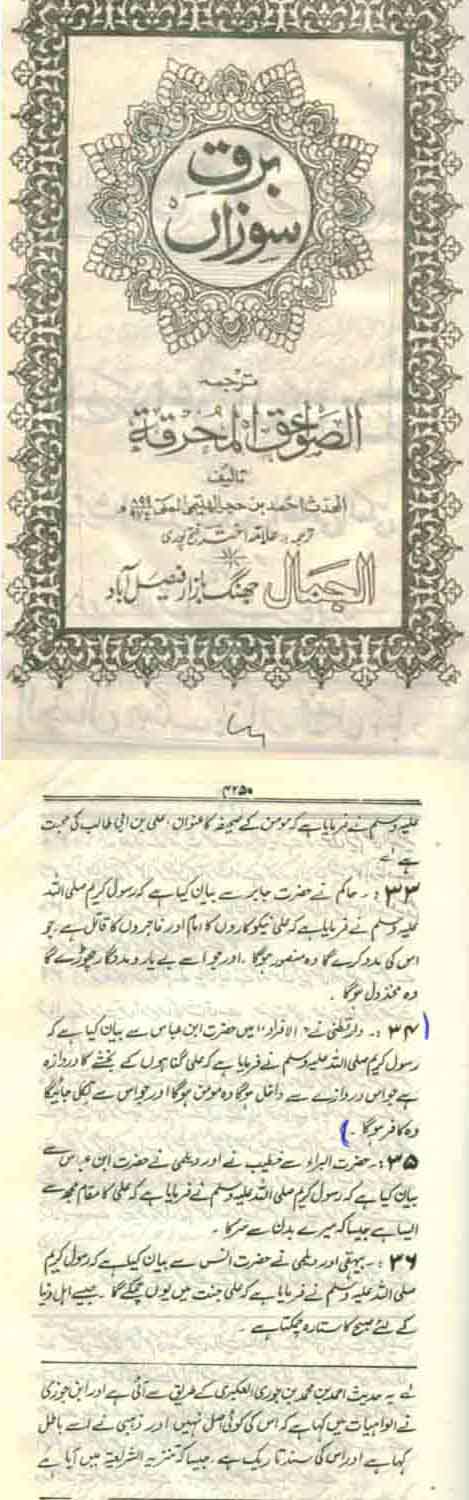 برق
سوزاں
ترجمہ
الصواعق المحرقة
تالیف
المحدث احمد بن حجر الهیتمی المکی
ترجمہ: علامہ اختر فتح پوری
الجمال جھنگ بازار فیصل آباد
۴۲۵۰
علیہ وسلم نے فرمایا ہے کہ مومن کے صحیفہ کا عنوان، علی بن ابی طالب کی محبت
ہے لے
۳۳ :۔ حاکم نے حضرت جابر سے بیان کیا ہے کہ رسول کریم صلی اللہ
علیہ وسلم نے فرمایا ہے کہ علی نیکوکاروں کا امام اور فاجروں کا قاتل ہے ۔جو
اس کی مدد کرے گا وہ منصور ہوگا ۔اور جو اسے بے یار و مددگار چھوڑے گا
وہ مخذول ہوگا ۔
( ۳۴ :۔ دارقطنی نے "الافراد" میں حضرت ابن عباس سے بیان کیا ہے کہ
رسول کریم صلی اللہ علیہ وسلم نے فرمایا ہے کہ علی گناہوں کے بخشنے کا دروازہ
ہے جو اس دروازے سے داخل ہوگا وہ مومن ہوگا اور جو اس سے نکل جائیگا
وہ کافر ہوگا ۔ )
۳۵ :۔ حضرت البراء سے خطیب نے اور دیلمی نے حضرت ابن عباس سے
بیان کیا ہے کہ رسول کریم صلی اللہ علیہ وسلم نے فرمایا ہے کہ علی کا مقام مجھ سے
ایسا ہے جیسا کہ میرے بدن سے سر کا ۔
۳۶ :۔ بیہقی اور دیلمی نے حضرت انس سے بیان کیا ہے کہ رسول کریم
صلی اللہ علیہ وسلم نے فرمایا ہے کہ علی جنت میں یوں چمکے گا ۔ جیسے اہل دنیا
کے لئے صبح کا ستارہ چمکتا ہے ۔
لے یہ حدیث احمد بن محمد بن جوری العکبری کے طریق سے آئی ہے اور ابن جوزی
نے الواہیات میں کہا ہے کہ اس کی کوئی اصل نہیں اور ذہبی نے اسے باطل
کہا ہے اور اس کی سند تاریک ہے ۔ جیسا کہ تنزیہ الشریعۃ میں آیا ہے